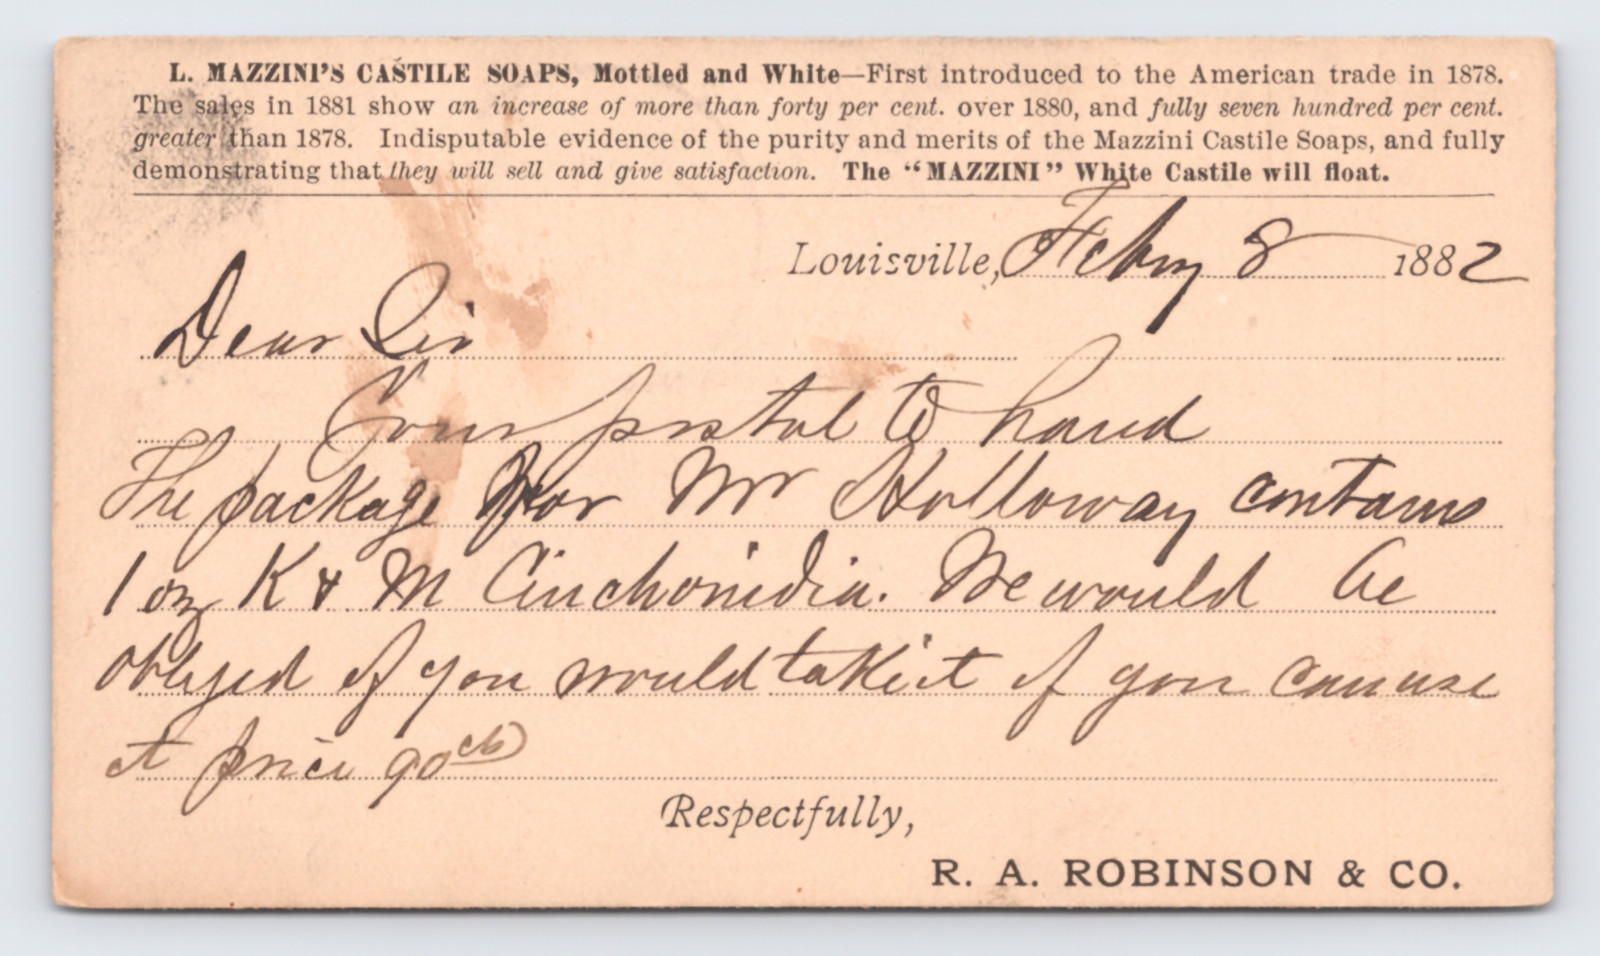 L. MAZZINI'S CASTILE SOAPS, Mottled and White—First introduced to the American trade in 1878.
The sales in 1881 show an increase of more than forty per cent. over 1880, and fully seven hundred per cent.
greater than 1878. Indisputable evidence of the purity and merits of the Mazzini Castile Soaps, and fully
demonstrating that they will sell and give satisfaction. The "MAZZINI" White Castile will float.
Louisville, Feby 8 1882
Dear Sir
Your postal to hand
The package for Mr Holloway contains
1 oz K & M Cinchonidia. We would be
obliged if you would take it if you can use
at price 90cts
Respectfully,
R. A. ROBINSON & CO.